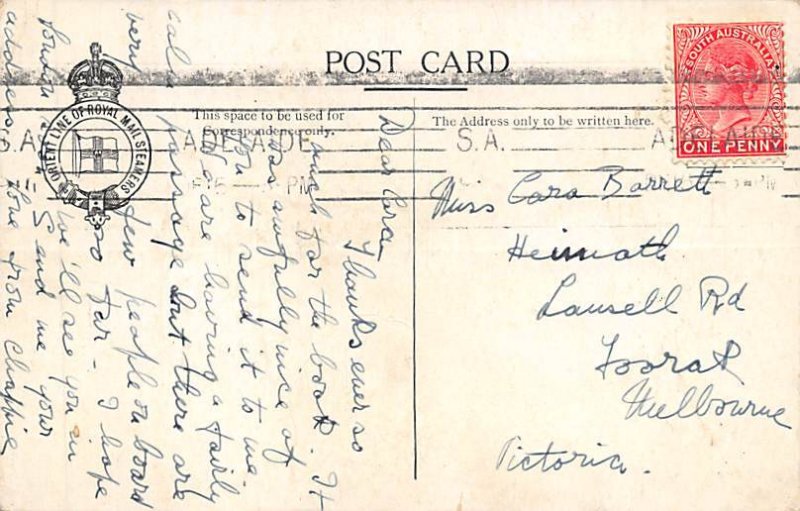 POST CARD
ORIENT LINE OF ROYAL MAIL STEAMERS
This space to be used for
Correspondence only.
The Address only to be written here.
SOUTH AUSTRALIA
ONE PENNY
S.A.
ADELAIDE
S.A.
ADELAIDE
Dear Cora
Thanks ever so
much for the book. It
was awfully nice of
you to send it to me.
We are having a fairly
calm passage but there are
very few people on board
so far - I hope
we'll see you in
London
Send me your
address
Love from Chappie
Miss Cora Barrett
Heimath
Lansell Rd
Toorak
Melbourne
Victoria.